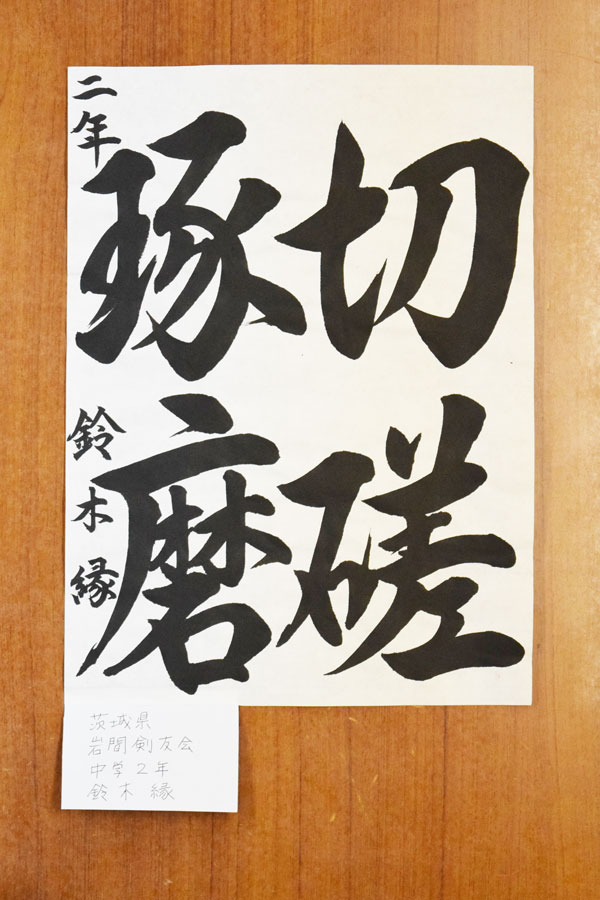 切磋
琢磨
二年 鈴木縁
茨城県
岩間剣友会
中学2年
鈴木 縁